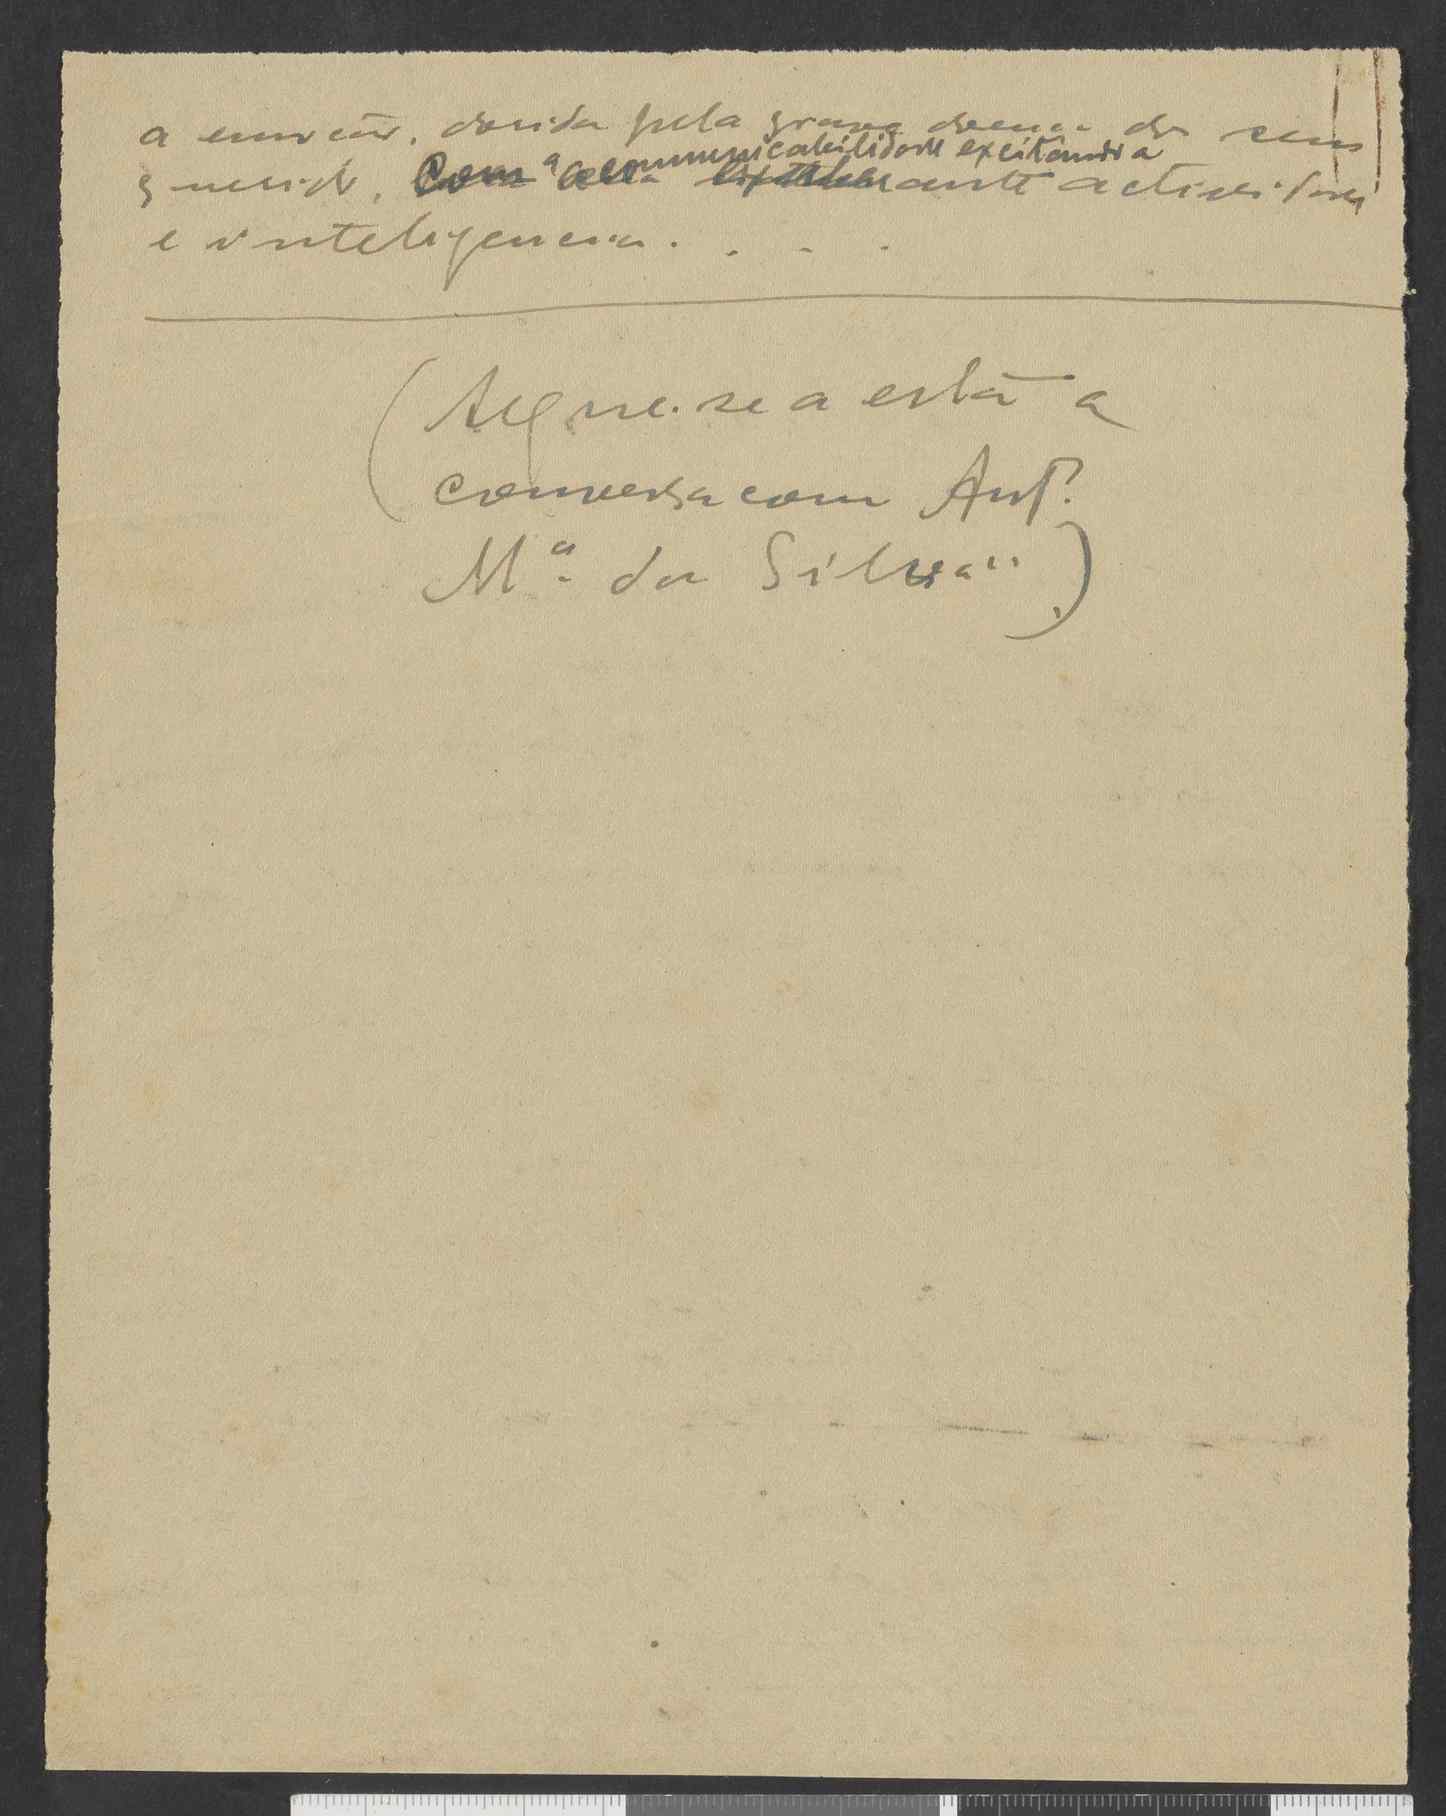 a emoção, devida pela grave doença do seu
querido, a communicabilidade excitando a
actividade
e inteligencia. . . .
(Segue-se a esta a
conversa com Antº.
Mª. da Silva")